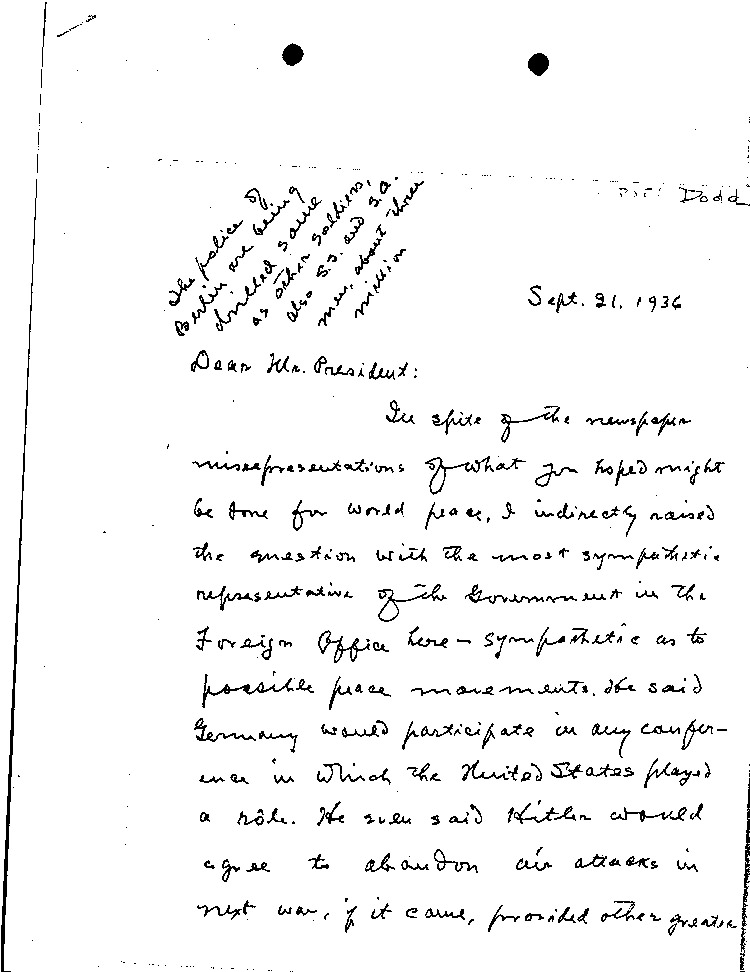 Dodd
The police of
Berlin are being
drilled same
as other soldiers,
also S.S. and S.A.
men, about three
million
Sept. 21, 1936
Dear Mr. President:
In spite of the newspaper
misrepresentations of what you hoped might
be done for world peace, I indirectly raised
the question with the most sympathetic
representative of the Government in the
Foreign Office here – sympathetic as to
possible peace movements. He said
Germany would participate in any confer-
ence in which the United States played
a rôle. He even said Hitler would
agree to abandon air attacks in
next war, if it came, provided other greater